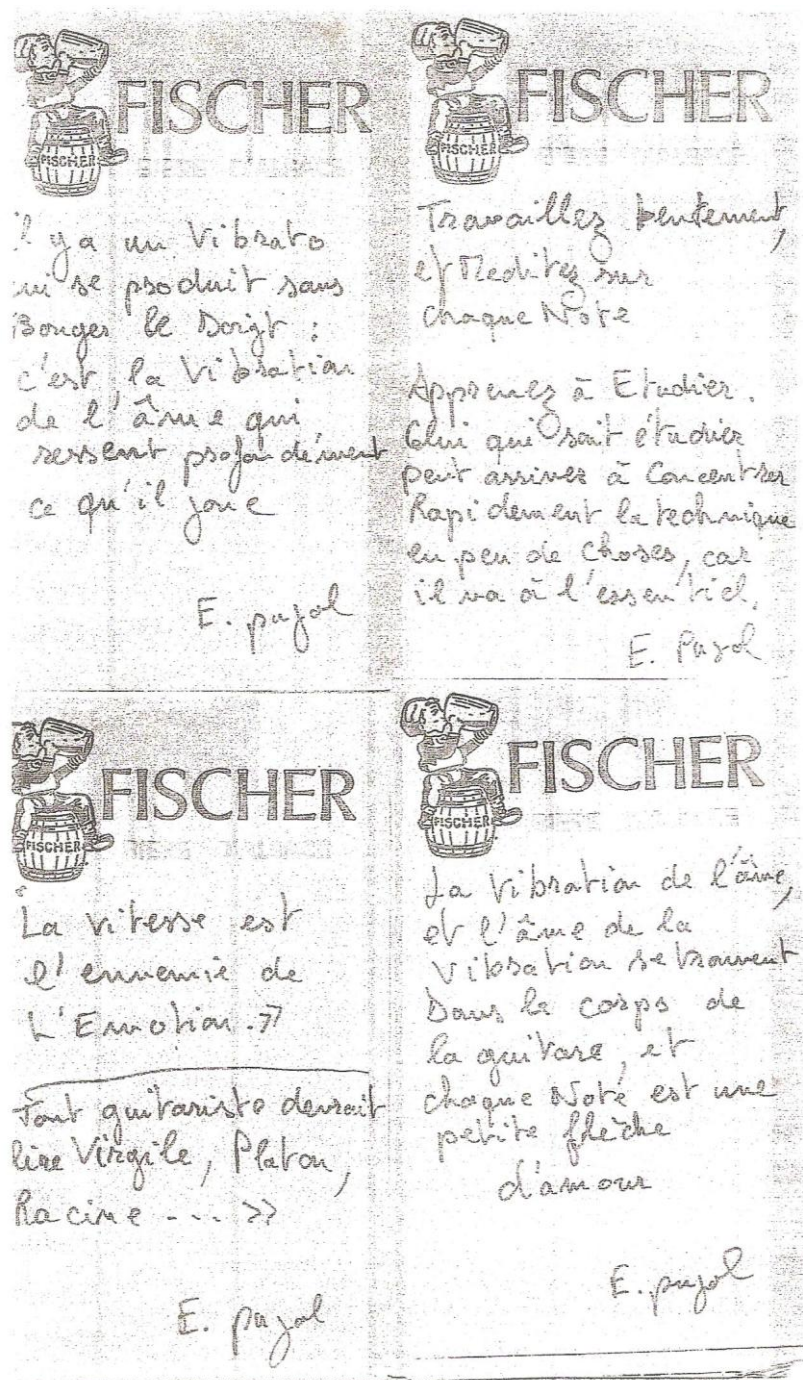 FISCHER
FISCHER
il y a un Vibrato
qui se produit sans
Bouger le Doigt :
c'est la Vibration
de l'âme qui
ressent profondément
ce qu'il joue
E. pujol
FISCHER
FISCHER
Travaillez Lentement,
et Meditez sur
chaque Note
Apprenez à Etudier.
Celui qui sait étudier
peut arriver à Concentrer
Rapidement la technique
en peu de choses, car
il va à l'essentiel.
E. Pujol
FISCHER
FISCHER
"La vitesse est
l'ennemie de
L'Emotion.»
Tout guitariste devrait
lire Virgile, Platon,
Racine ... »
E. pujol
FISCHER
FISCHER
La Vibration de l'âme,
et l'âme de la
Vibration se trouvent
Dans le corps de
la guitare, et
chaque Note est une
petite flèche
d'amour
E. pujol